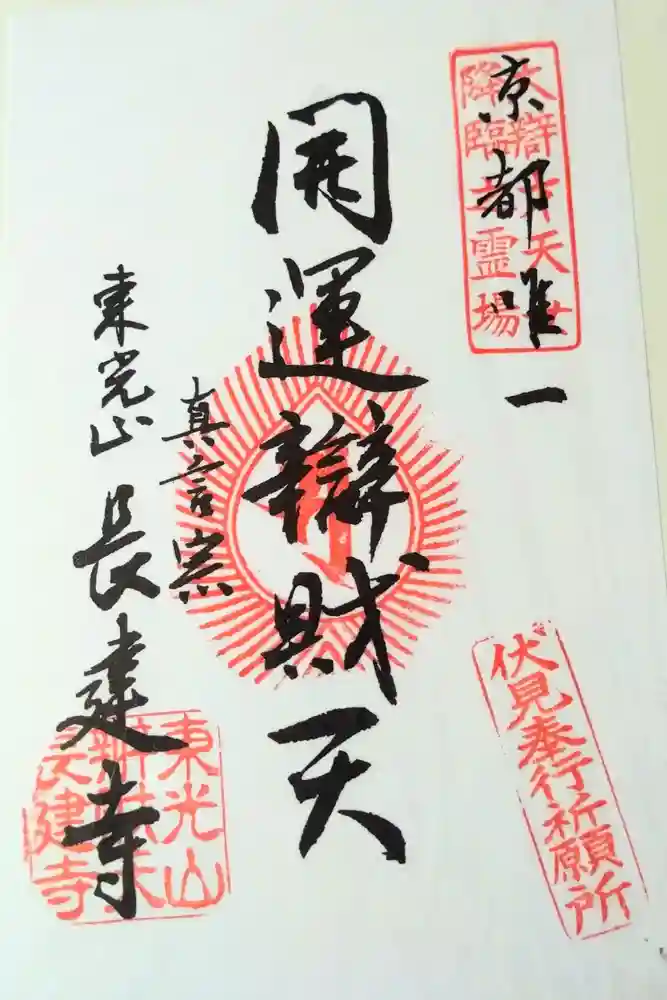 京都唯一
大辯才天女
降臨之霊場
伏見奉行祈願所
開運辯財天
真言宗
東光山 長建寺
東光山
辨財天
長建寺